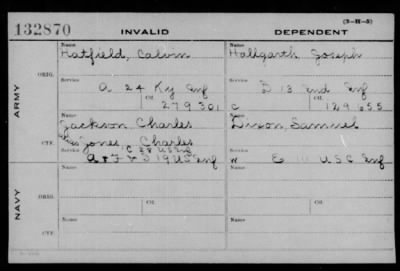 (3-H-5)
132870 INVALID DEPENDENT
Name Name
Hatfield, Calvin Hallgarth Joseph
ORIG. Service Service
A 24 Ky Inf D 13 Ind Inf
Ctf. Ctf.
279301 C 129655
ARMY
Name Name
Jackson Charles Dixon, Samuel
CTF. Jones Charles
Service C 28 US Inf Service
A & F & D 19 US Inf W E USC Inf
NAVY
Name Name
ORIG. Service Service
Ctf. Ctf.
Name Name
CTF.
Service Service